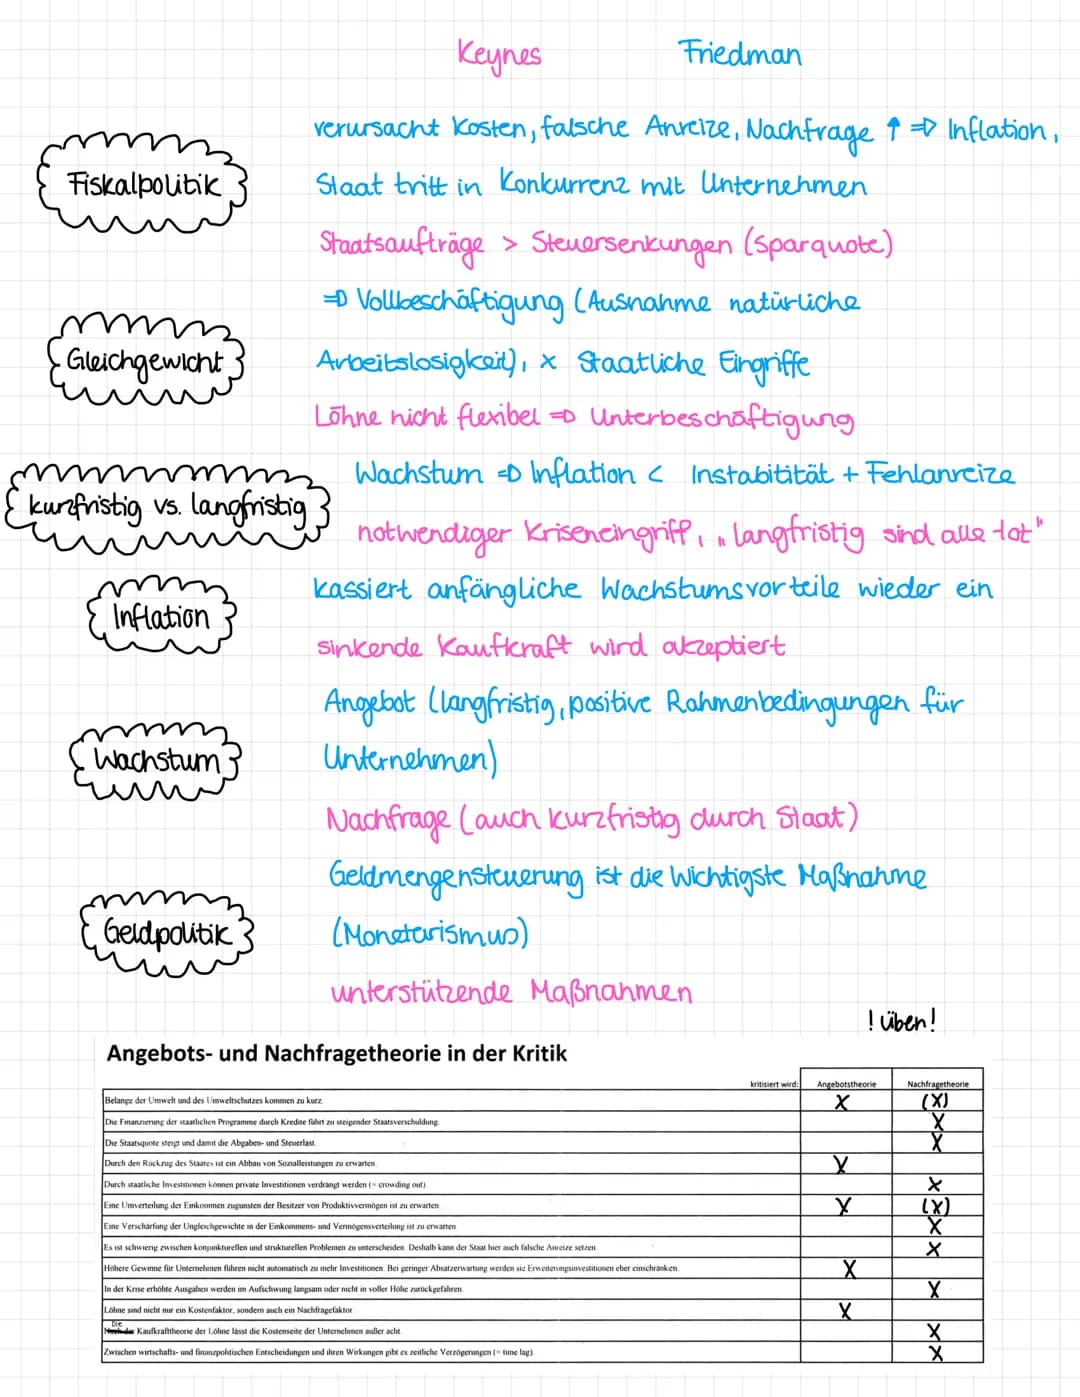 Keynes Friedman
verursacht Kosten, falsche Anreize, Nachfrage ↑ => Inflation,
Fiskalpolitik Staat tritt in Konkurrenz mit Unternehmen
Staatsaufträge > Steuersenkungen (Sparquote)
=> Vollbeschäftigung (Ausnahme natürliche
Gleichgewicht Arbeitslosigkeit), x Staatliche Eingriffe
Löhne nicht flexibel => Unterbeschäftigung
Wachstum => Inflation < Instabitität + Fehlanreize
kurzfristig vs. langfristig
notwendiger Kriseneingriff, „langfristig sind alle tot"
kassiert anfängliche Wachstumsvorteile wieder ein
Inflation
sinkende Kaufkraft wird akzeptiert
Angebot (langfristig, positive Rahmenbedingungen für
Wachstum Unternehmen)
Nachfrage (auch kurzfristig durch Staat)
Geldmengensteuerung ist die wichtigste Maßnahme
Geldpolitik (Monetarismus)
unterstützende Maßnahmen
! üben!
Angebots- und Nachfragetheorie in der Kritik
kritisiert wird: Angebotstheorie Nachfragetheorie
Belange der Umwelt und des Umweltschutzes kommen zu kurz. X (X)
Die Finanzierung der staatlichen Programme durch Kredite führt zu steigender Staatsverschuldung. X
Die Staatsquote steigt und damit die Abgaben- und Steuerlast. X
Durch den Rückzug des Staates ist ein Abbau von Sozialleistungen zu erwarten. X
Durch staatliche Investitionen können private Investitionen verdrängt werden (= crowding out) X
Eine Umverteilung der Einkommen zugunsten der Besitzer von Produktivvermögen ist zu erwarten. X (X)
Eine Verschärfung der Ungleichgewichte in der Einkommens- und Vermögensverteilung ist zu erwarten. X
Es ist schwierig zwischen konjunkturellen und strukturellen Problemen zu unterscheiden. Deshalb kann der Staat hier auch falsche Anreize setzen. X
Höhere Gewinne für Unternehmen führen nicht automatisch zu mehr Investitionen. Bei geringer Absatzerwartung werden sie Erweiterungsinvestitionen eher einschränken. X
In der Krise erhöhte Ausgaben werden im Aufschwung langsam oder nicht in voller Höhe zurückgefahren. X
Löhne sind nicht nur ein Kostenfaktor, sondern auch ein Nachfragefaktor X
Die Kaufkrafttheorie der Löhne lässt die Kostenseite der Unternehmen außer acht. X
Zwischen wirtschafts- und finanzpolitischen Entscheidungen und ihren Wirkungen gibt es zeitliche Verzögerungen (= time lag). X